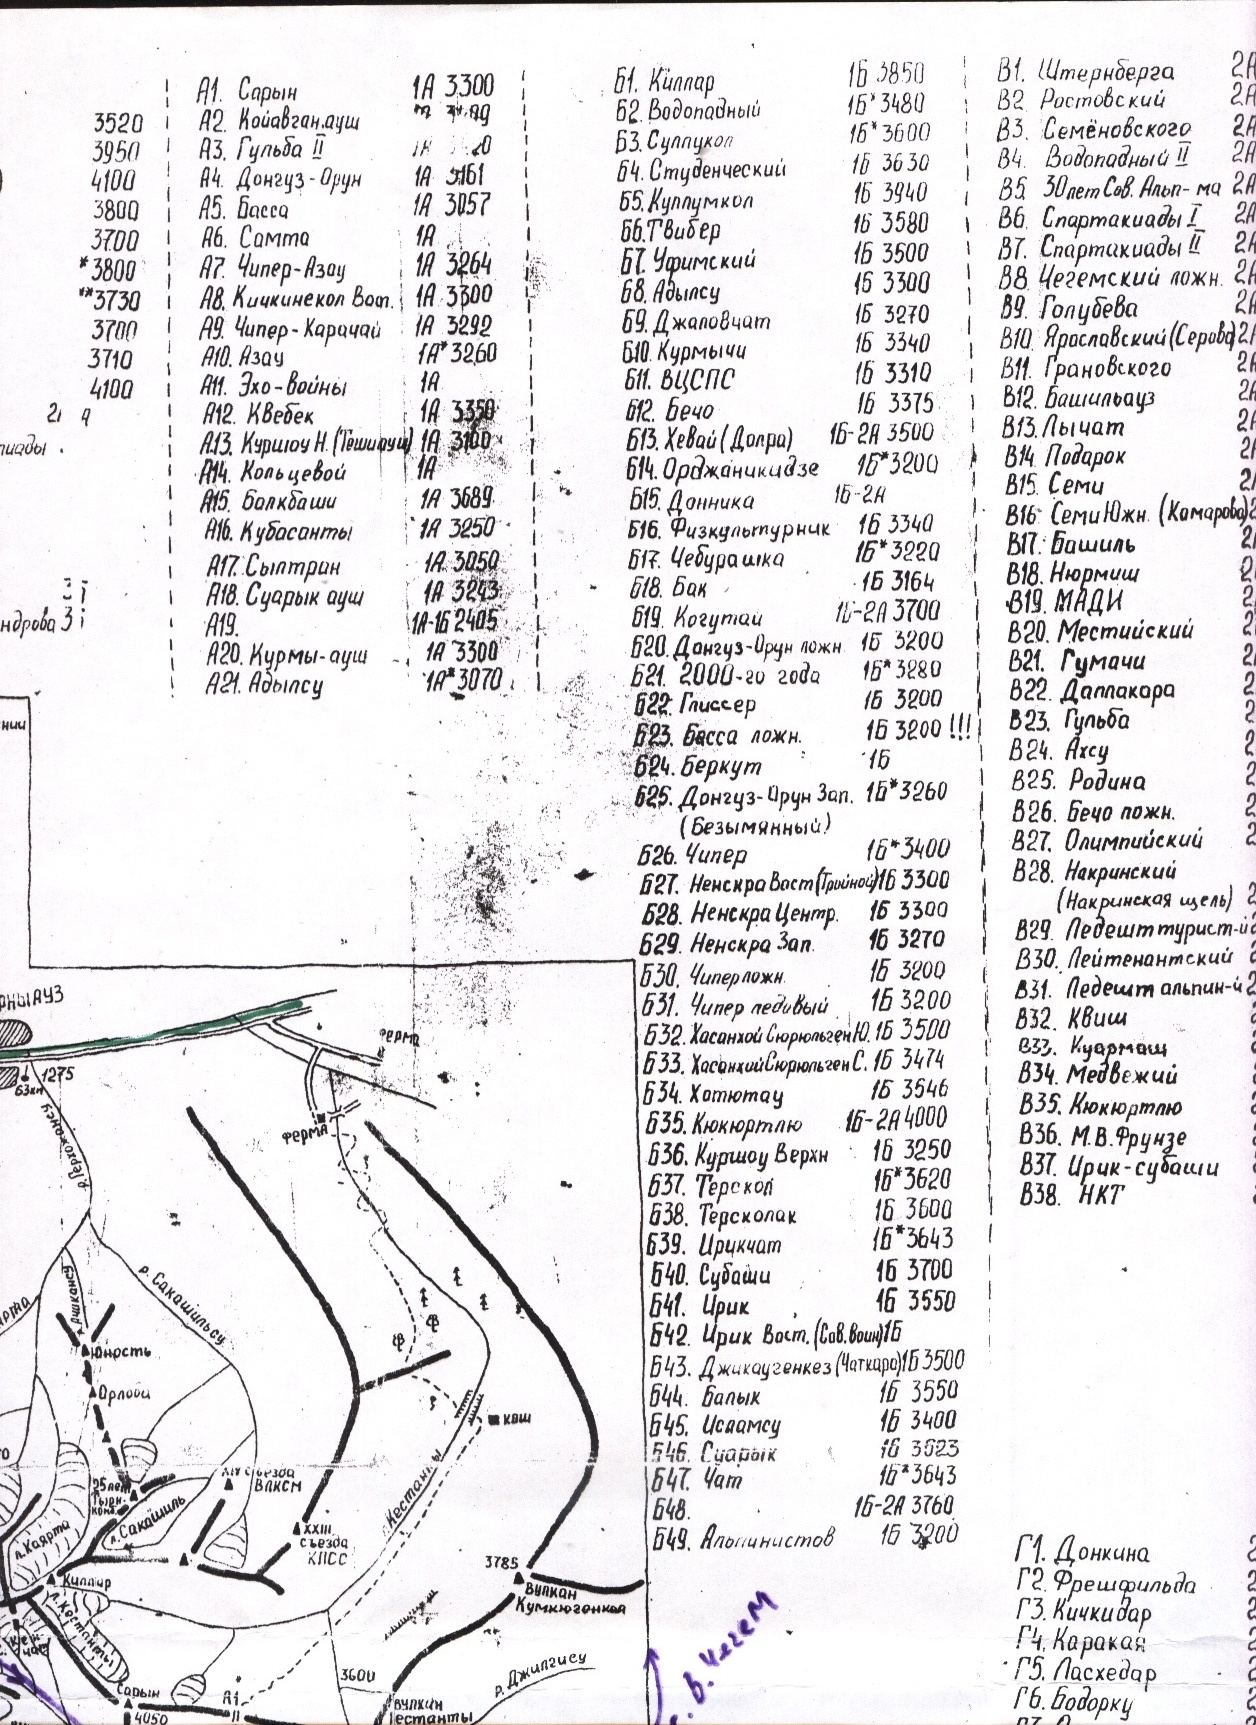 3520
3950
4100
3800
3700
*3800
**3730
3700
3710
4100
ндрова 3
нии
А1. Сарын 1А 3300
А2. Койавган.ауш
А3. Гульба II
А4. Донгуз-Орун 1А 3161
А5. Басса 1А 3057
А6. Самта 1А
А7. Чипер-Азау 1А 3264
А8. Кичкинекол Вост. 1А 3300
А9. Чипер-Карачай 1А 3292
А10. Азау 1А*3260
А11. Эхо-войны 1А
А12. Квебек 1А 3350
А13. Куршоу Н. (Тешикауш) 1А 3100
А14. Кольцевой 1А
А15. Балкбаши 1А 3689
А16. Кубасанты 1А 3250
А17. Сылтрин 1А 3050
А18. Суарык ауш 1А 3243
А19. 1А-1Б 2405
А20. Курмы-ауш 1А 3300
А21. Адылсу 1А*3070
Б1. Киллар 1Б 3850
Б2. Водопадный 1Б*3480
Б3. Суллукол 1Б*3600
Б4. Студенческий 1Б 3630
Б5. Куллумкол 1Б 3940
Б6. Твибер 1Б 3580
Б7. Уфимский 1Б 3500
Б8. Адылсу 1Б 3300
Б9. Джаловчат 1Б 3270
Б10. Курмычи 1Б 3340
Б11. ВЦСПС 1Б 3310
Б12. Бечо 1Б 3375
Б13. Хевай (Долра) 1Б-2А 3500
Б14. Орджаникидзе 1Б*3200
Б15. Донника 1Б-2А
Б16. Физкультурник 1Б 3340
Б17. Чебурашка 1Б*3220
Б18. Бак 1Б 3164
Б19. Когутаи 1Б-2А 3700
Б20. Донгуз-Орун ложн 1Б 3200
Б21. 2000-го года 1Б*3280
Б22. Глиссер 1Б 3200
Б23. Басса ложн. 1Б 3200 !!!
Б24. Беркут 1Б
Б25. Донгуз-Орун Зап. 1Б*3260
(Безымянный)
Б26. Чипер 1Б*3400
Б27. Ненскра Вост (Тройной) 1Б 3300
Б28. Ненскра Центр. 1Б 3300
Б29. Ненскра Зап. 1Б 3270
Б30. Чипер ложн. 1Б 3200
Б31. Чипер ледовый 1Б 3200
Б32. Хасанкой Сюрюльген Ю. 1Б 3500
Б33. Хасанкой Сюрюльген С. 1Б 3474
Б34. Хотютау 1Б 3546
Б35. Кюкюртлю 1Б-2А 4000
Б36. Куршоу Верхн 1Б 3250
Б37. Терскол 1Б*3620
Б38. Терсколак 1Б 3600
Б39. Ирикчат 1Б*3643
Б40. Субаши 1Б 3700
Б41. Ирик 1Б 3550
Б42. Ирик Вост. (Сов. воин) 1Б
Б43. Джикаугенкез (Чаткара) 1Б 3500
Б44. Балык 1Б 3550
Б45. Исламсу 1Б 3400
Б46. Суарык 1Б 3623
Б47. Чат 1Б*3643
Б48. 1Б-2А 3760
Б49. Альпинистов 1Б 3200
В1. Штернберга 2А
В2 Ростовский 2А
В3. Семёновского 2А
В4. Водопадный II 2А
В5. 30 лет Сов. Альп-ма 2А
В6. Спартакиады I 2А
В7. Спартакиады II 2А
В8. Чегемский ложн. 2А
В9. Голубева 2А
В10. Ярославский (Серова) 2А
В11. Грановского 2А
В12. Башильауз 2А
В13. Лычат 2А
В14. Подарок
В15. Семи
В16. Семи Южн. (Комарова)
В17. Башиль
В18. Нюрмиш
В19. МАДИ
В20. Местийский
В21. Гумачи
В22. Даллакора
В23. Гульба
В24. Ахсу
В25. Родина
В26. Бечо ложн.
В27. Олимпийский
В28. Накринский
(Накринская щель)
В29. Ледешт турист-й
В30. Лейтенантский
В31. Ледешт альпин-й
В32. Квиш
В33. Куармаш
В34. Медвежий
В35. Кюкюртлю
В36. М.В. Фрунзе
В37. Ирик-субаши
В38. НКТ
Г1. Донкина
Г2. Фрешфильда
Г3. Кичкидар
Г4. Каракая
Г5. Ласхедар
Г6. Бодорку
РНЫАУЗ
63км
1275
ферма
ферма
р. Сакашильсу
Юность
Орлова
25 лет
XIV съезда
ВЛКСМ
л. Сакашиль
л. Каярта
XXIII
съезда
КПСС
Кестанты
кош
Киллар
л. Кестанты
3785
Вулкан
Кумкюгенкая
3600
р. Джилгису
Сарын
4050
А1
Вулкан
Кестанты
с. В. Чегем